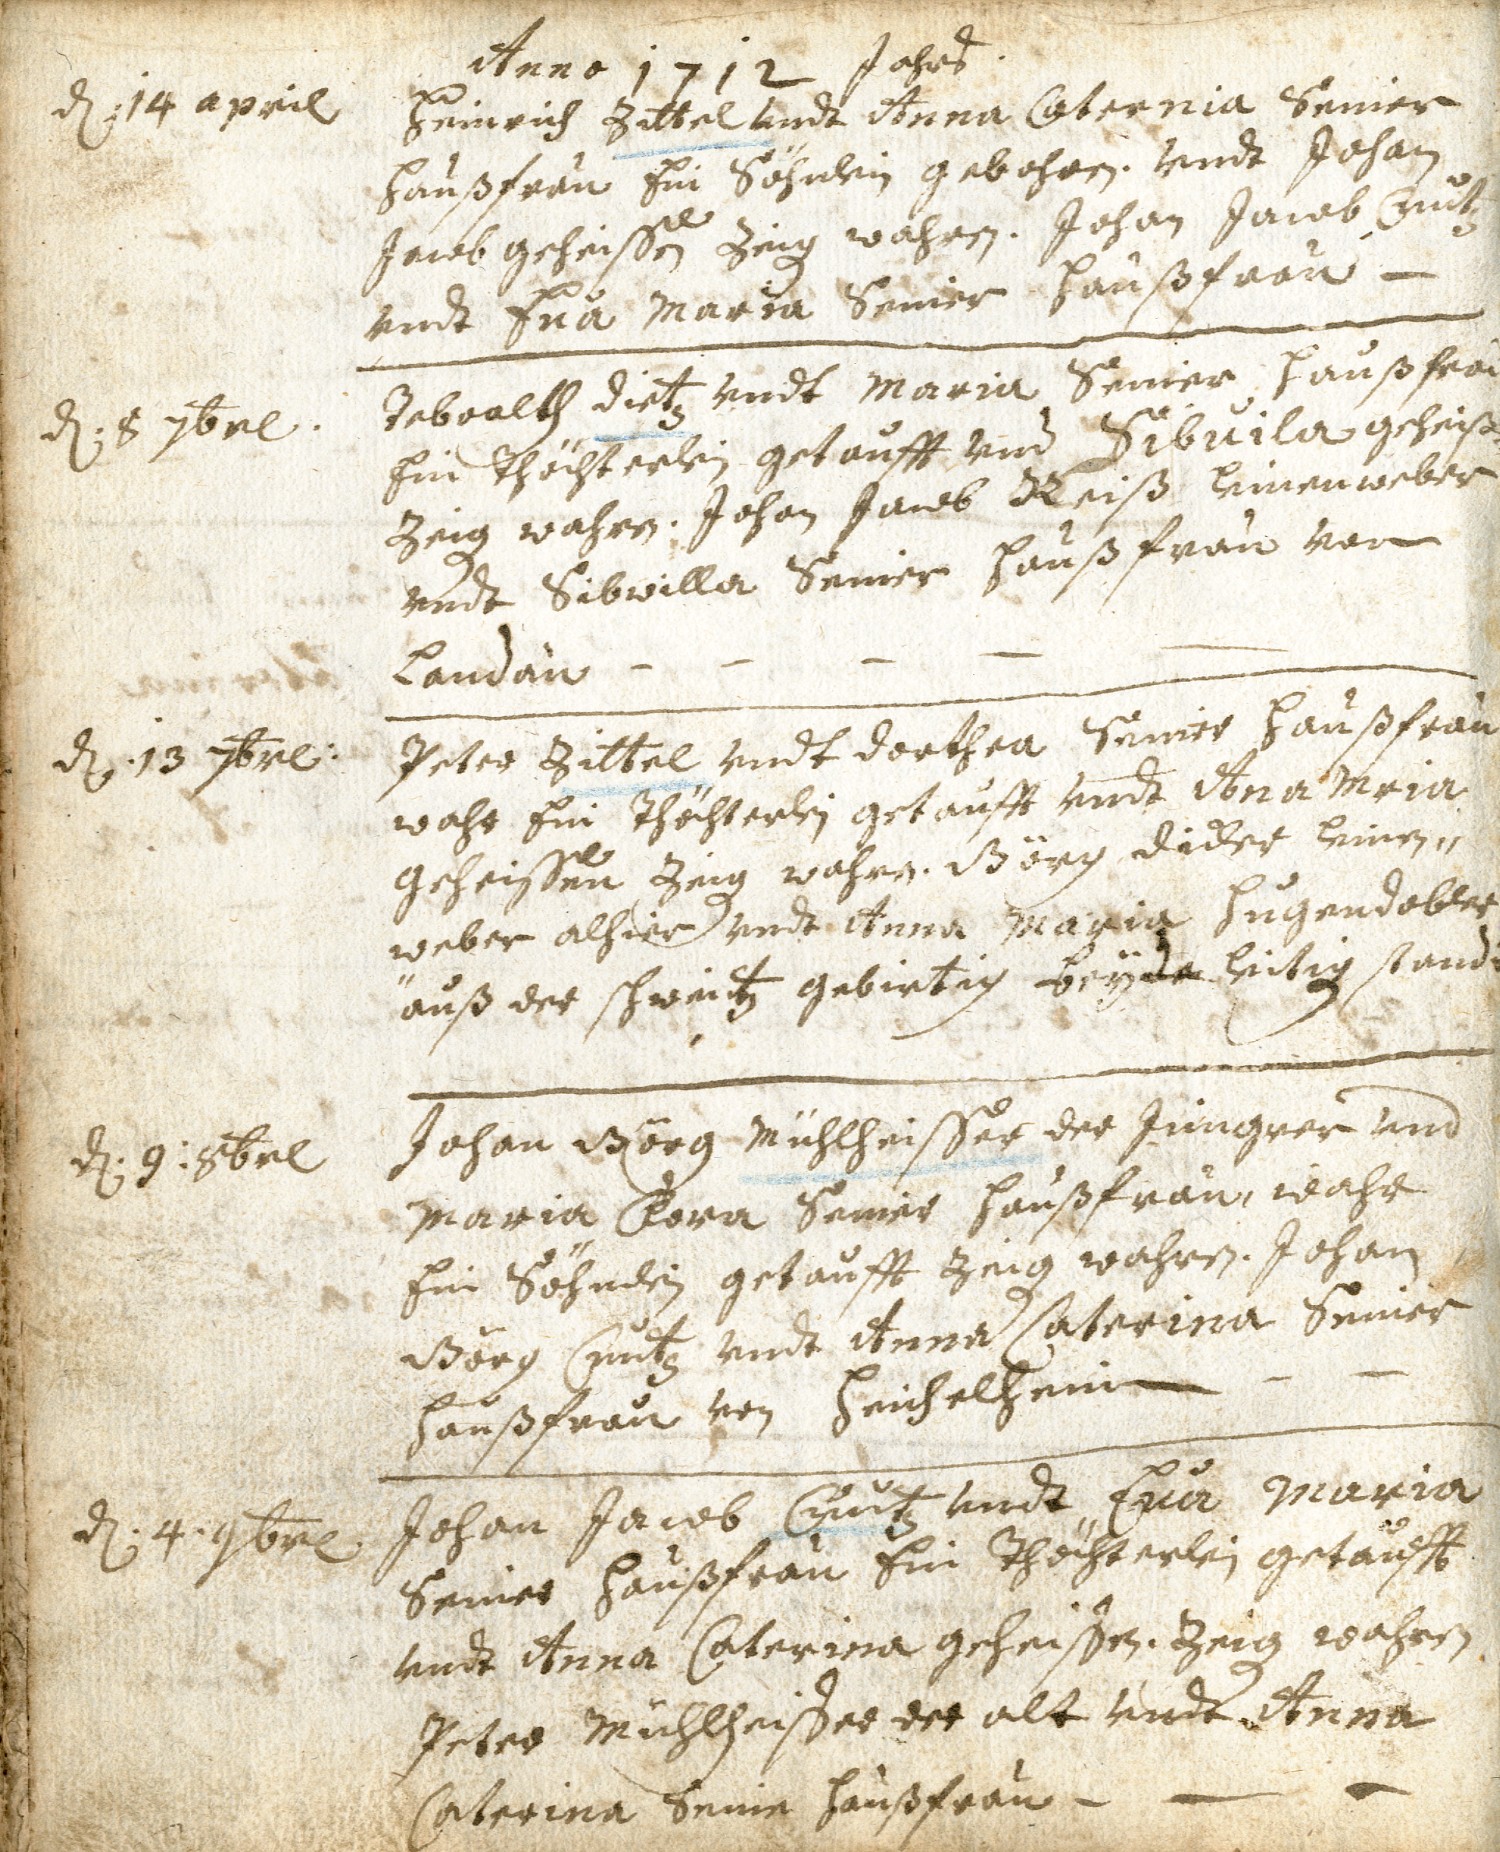 Anno 1712 Jahrs.
d. 14 april
Heinrich Zittel undt Anna Caternia Seiner
haußfrau Ein Söhnlein gebohren. undt Johan
Jacob geheissen Zeig wahren. Johan Jacob Cuntz
undt Eua Maria Seiner haußfrau —
d. 8 7brl.
Debaalth dietz undt Maria Seiner haußfrau
Ein Thöchterlein getaufft und Sibuila geheiß
Zeig wahren. Johan Jacob Reiß leinenweber
undt Sibwilla Seiner haußfrau von
Landau - - - — —
d. 13 7brl:
Peter Zittel undt dorthea Seiner haußfrau
wahr Ein Thöchterlein getaufft undt Ana Mria
geheissen Zeig wahren. Görg dider leinen„
weber alhier undt Anna Maria hugendobler
auß der schweitz gebirtig beyde leitig standt
d. 9: 8brl
Johan Görg Mühlheisser der Jüngrer und
Maria Clora Seiner haußfrau, wahr
Ein Söhnlein getaufft Zeig wahren. Johan
Görg Cuntz undt Anna Caterina Seiner
haußfrau von heichelheim — - —
d. 4. 9brl
Johan Jacob Cuntz undt Eua Maria
Seiner haußfrau Ein Thöchterlein getaufft
undt Anna Caterina geheissen. Zeig wahren
Peter Mühlheisser der alt undt Anna
Caterina Seine haußfrau - — —